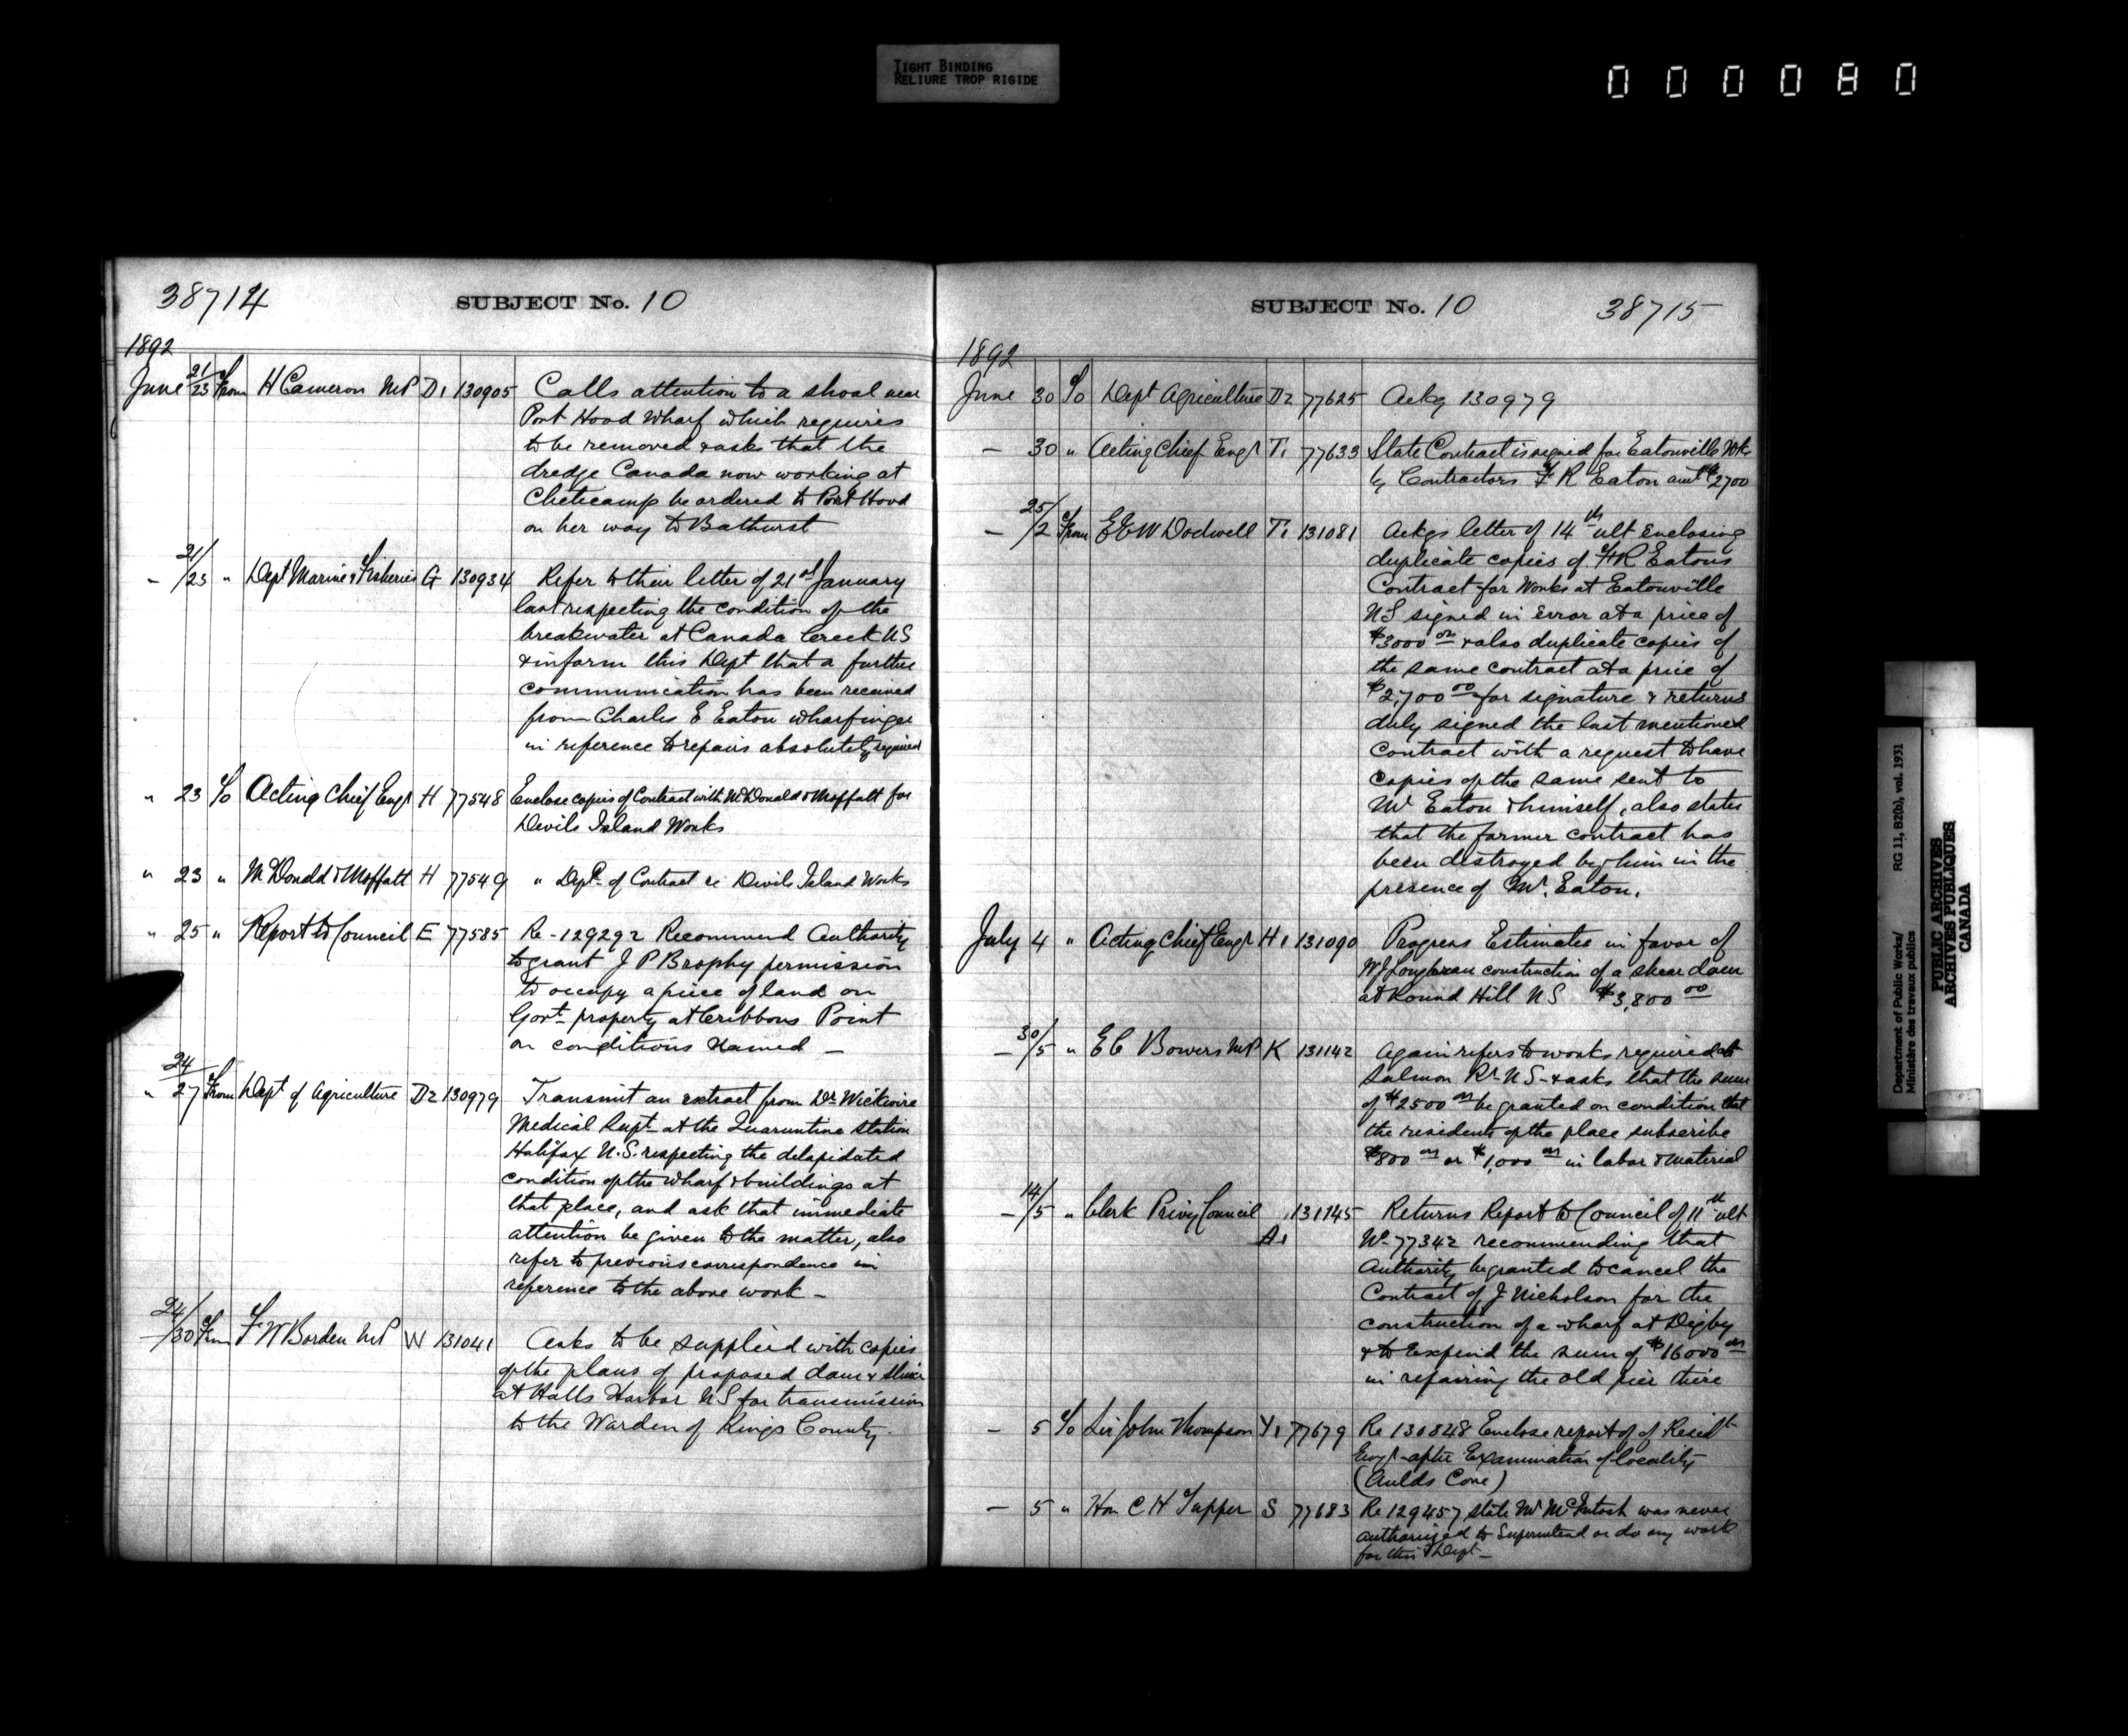 TIGHT BINDING
RELIURE TROP RIGIDE
000080
38714
SUBJECT No. 10
1892
June 21/23 From H Cameron MP D1 130905 Calls attention to a shoal near
Port Hood Wharf which requires
to be removed & asks that the
dredge Canada now working at
Cheticamp be ordered to Port Hood
on her way to Bathurst
– 21/23 " Dept Marine & Fisheries G 130934 Refer to their letter of 21st January
last respecting the condition of the
breakwater at Canada Creek NS
& inform this Dept that a further
communication has been received
from Charles E Eaton wharfinger
in reference to repairs absolutely required
" 23 To Acting Chief Engr H 77548 Enclose copies of Contract with McDonald & Moffatt for
Devils Island Works
" 23 " McDonald & Moffatt H 77549 " Dept. of Contract re Devils Island Works
" 25 " Report to Council E 77585 Re - 129292 Recommend Authority
to grant J P Brophy permission
to occupy a piece of land on
Govt. property at Cribbons Point
on conditions named –
" 24/27 From Dept of Agriculture D2 130979 Transmit an extract from Dr Wickwire
Medical Supt at the Quaruntine Station
Halifax N.S. respecting the delapidated
condition of the wharf & buildings at
that place, and ask that immediate
attention be given to the matter, also
refer to previous correspondence in
reference to the above work –
– 24/30 From F W Borden MP W 131041 Asks to be supplied with copies
of the plans of proposed dam & sluice
at Halls Harbor NS for transmission
to the Warden of Kings County.
SUBJECT No. 10
38715
1892
June 30 To Dept Agriculture D2 77625 Ackg 130979
– 30 " Acting Chief Engr T1 77633 State Contract is signed for Eatonville Wks
by Contractors F R Eaton amt $2700
– 25/2 From E E W Dodwell T1 131081 Ackgs letter of 14th ult enclosing
duplicate copies of F R Eatons
Contract for Works at Eatonville
NS signed in error at a price of
$3000 00 & also duplicate copies of
the same contract at a price of
$2,700 00 for signature & returns
duly signed the last mentioned
Contract with a request to have
copies of the same sent to
Mr Eaton & himself, also states
that the former contract has
been destroyed by him in the
presence of Mr. Eaton.
July 4 " Acting Chief Engr H1 131090 Progress Estimates in favor of
W J construction of a shear dam
at Round Hill NS $3,800 00
– 30/5 " E C Bowers MP K 131142 Again refers to works required at
Salmon Rr NS - & asks that the sum
of $2500 00 be granted on condition that
the residents of the place subscribe
$800 00 or $1,000 00 in labor & material
– 14/5 " Clerk Privy Council A1 131145 Returns Report to Council of 11th ult
No 77342 recommending that
Authority be granted to cancel the
Contract of J Nicholson for the
construction of a wharf at Digby
& to Expend the sum of $16000 00
in repairing the old pier there
– 5 To Sir John Thompson Y1 77679 Re 130848 Enclose report of of Resid
Engr after Examination of locality
(Aulds Cove)
– 5 " Hon C H Tupper S 77683 Re 129457 state Mr McIntosh was never
authorized to Superintend or do any work
for this Dept –
Department of Public Works/
Ministère des travaux publics
RG 11, B2(b), vol. 1931
PUBLIC ARCHIVES
ARCHIVES PUBLIQUES
CANADA